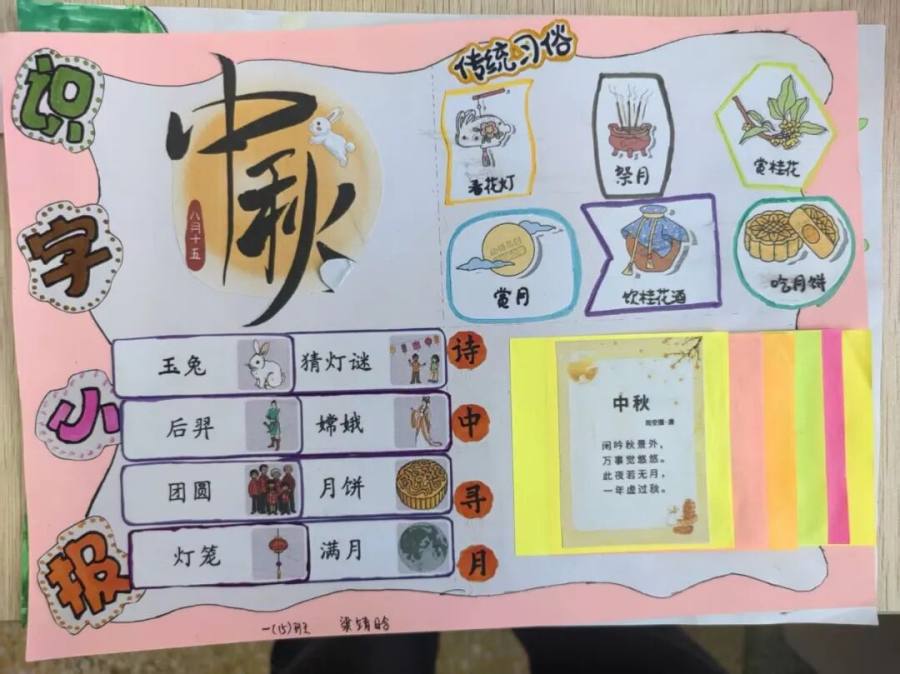 识字小报
中秋
八月十五
传统习俗
看花灯
祭月
赏桂花
赏月
饮桂花酒
吃月饼
玉兔
猜灯谜
后羿
嫦娥
团圆
月饼
灯笼
满月
诗中寻月
中秋
闲吟秋景外，
万事觉悠悠。
此夜若无月，
一年虚过秋。
一(15)班